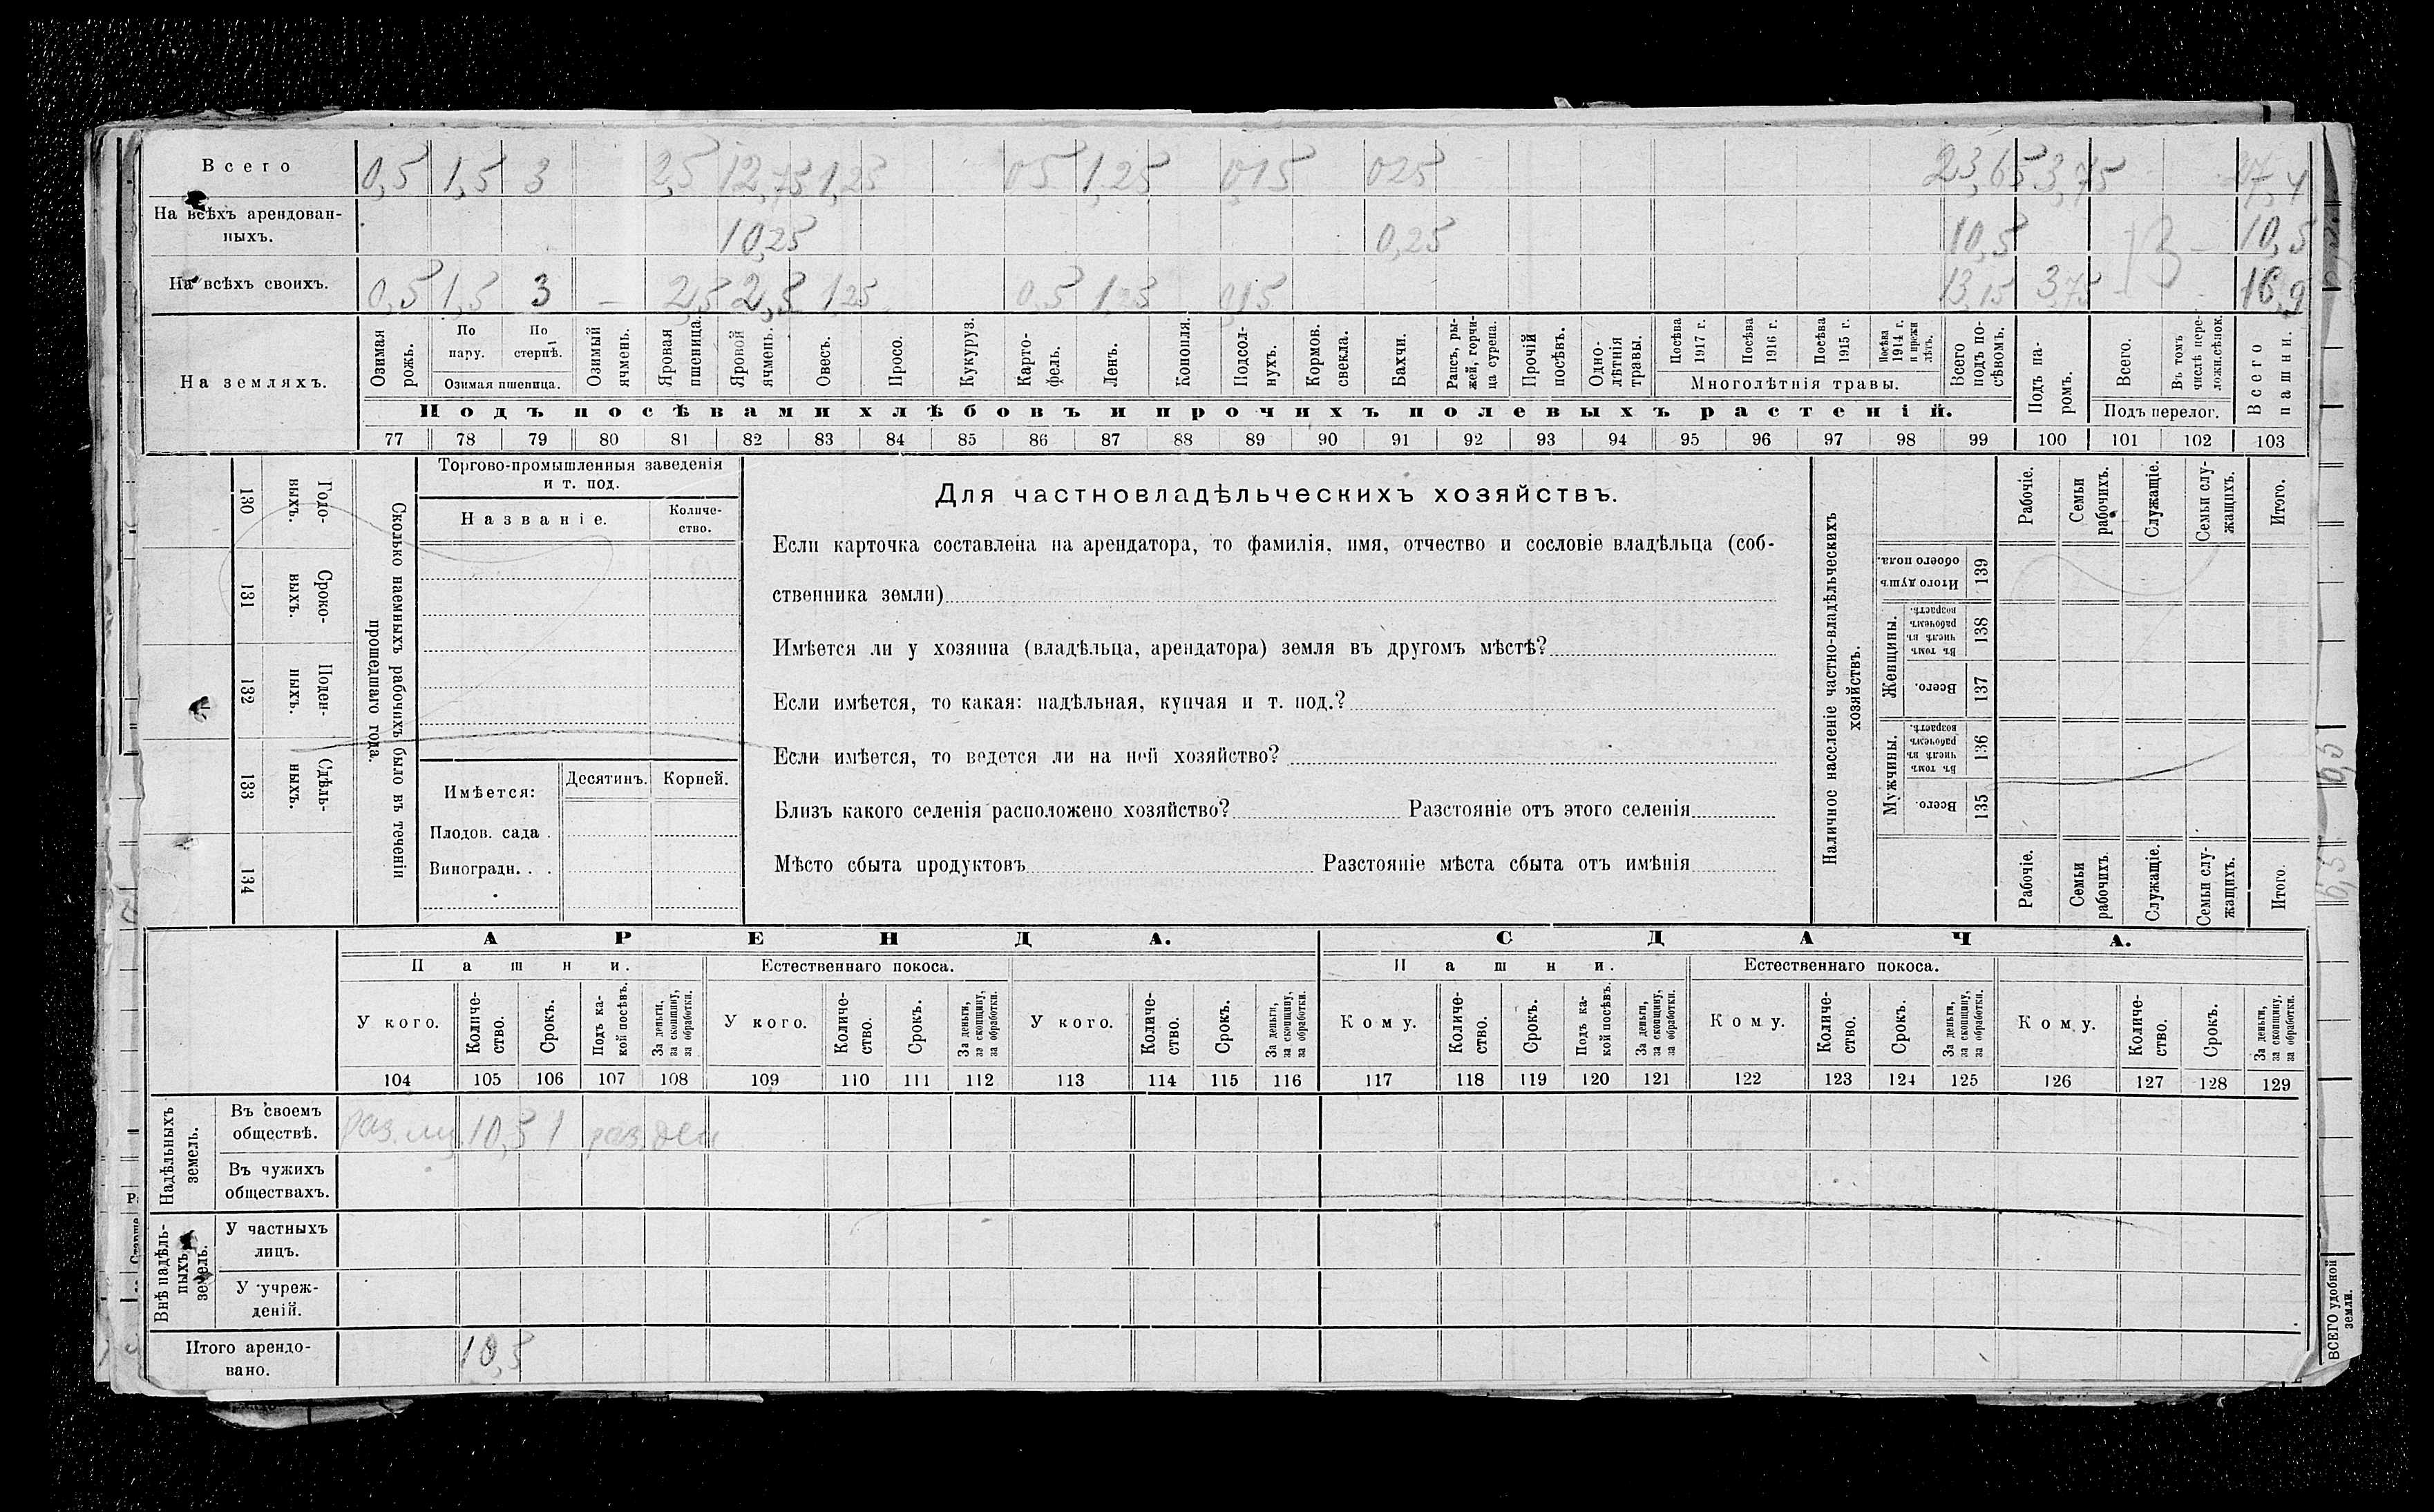 Всего 0,5 1,5 3 2,5 12,75 1,25 0 5 1,25 0,15 0 25 23,65 3,75 27,4
На всѣхъ арендован-
ныхъ. 10,25 0,25 10,5 10,5
На всѣхъ своихъ. 0,5 1,5 3 — 2,5 2,5 1,25 0,5 1,25 0,15 13,15 3,75 16,9
На земляхъ.
Озимая рожь.
По пару.
По стернѣ.
Озимая пшеница.
Озимый ячмень.
Яровая пшеница.
Яровой ячмень.
Овесъ.
Просо.
Кукуруз.
Карто-
фель.
Ленъ.
Конопля.
Подсол-
нухъ.
Кормов. свекла.
Бахчи.
Рапсъ, ры-
жей, горчи-
ца сурепа.
Прочій посѣвъ.
Одно-
лѣтнія травы.
Посѣва 1917 г.
Посѣва 1916 г.
Посѣва 1915 г.
Посѣва 1914 г. и прежн лѣтъ.
Многолѣтнія травы.
Всего подъ по-
сѣвомъ.
Подъ па-
ромъ.
Всего.
Въ томъ числѣ пере-
ложн.сѣнок.
Подъ перелог.
Всего пашни.
Подъ посѣвами хлѣбовъ и прочихъ полевыхъ растеній.
77 78 79 80 81 82 83 84 85 86 87 88 89 90 91 92 93 94 95 96 97 98 99 100 101 102 103
130 Годо-
выхъ.
131 Сроко-
выхъ.
132 Поден-
ныхъ.
133 Сдѣль-
ныхъ.
134
Сколько наемныхъ рабочихъ было въ теченіи
прошедшаго года.
Торгово-промышленныя заведенія
и т. под.
Названіе. Количе-
ство.
Имѣется: Десятинъ. Корней.
Плодов. сада .
Виноградн. . .
Для частновладѣльческихъ хозяйствъ.
Если карточка составлена на арендатора, то фамилія, имя, отчество и сословіе владѣльца (соб-
ственника земли)
Имѣется ли у хозяина (владѣльца, арендатора) земля въ другомъ мѣстѣ?
Если имѣется, то какая: надѣльная, купчая и т. под.?
Если имѣется, то ведется ли на ней хозяйство?
Близъ какого селенія расположено хозяйство? Разстояніе отъ этого селенія
Мѣсто сбыта продуктовъ Разстояніе мѣста сбыта отъ имѣнія
Наличное населеніе частно-владѣльческихъ
хозяйствъ.
Рабочіе.
Семьи рабочихъ.
Служащіе.
Семьи слу-
жащихъ.
Итого.
Итого душъ обоего пола. 139
Женщины.
Въ томъ числѣ въ рабочемъ возрастѣ. 138
Всего. 137
Мужчины.
Въ томъ числѣ въ рабочемъ возрастѣ. 136
Всего. 135
Рабочіе.
Семьи рабочихъ.
Служащіе.
Семьи слу-
жащихъ.
Итого.
АРЕНДА. СДАЧА.
Пашни. Естественнаго покоса. Пашни. Естественнаго покоса.
У кого.
Количе-
ство.
Срокъ.
Подъ ка-
кой посѣвъ.
За деньги, за скопщину, за обработки.
У кого.
Количе-
ство.
Срокъ.
За деньги, за скопщину, за обработки.
У кого.
Количе-
ство.
Срокъ.
За деньги, за скопщину, за обработки.
Кому.
Количе-
ство.
Срокъ.
Подъ ка-
кой посѣвъ.
За деньги, за скопщину, за обработки.
Кому.
Количе-
ство.
Срокъ.
За деньги, за скопщину, за обработки.
Кому.
Количе-
ство.
Срокъ.
За деньги, за скопщину, за обработки.
104 105 106 107 108 109 110 111 112 113 114 115 116 117 118 119 120 121 122 123 124 125 126 127 128 129
Надѣльныхъ земель.
Въ своемъ
обществѣ. 10,5 1 раз. ден
Въ чужихъ
обществахъ.
Внѣ надѣль-
ныхъ земель.
У частныхъ
лицъ.
У учреж-
деній.
Итого арендо-
вано. 10,5
ВСЕГО удобной
земли.